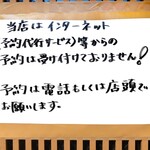 当店はインターネット
(予約代行サービス)等からの
予約は受け付けておりません!
予約は電話もしくは店頭で
お願いします。